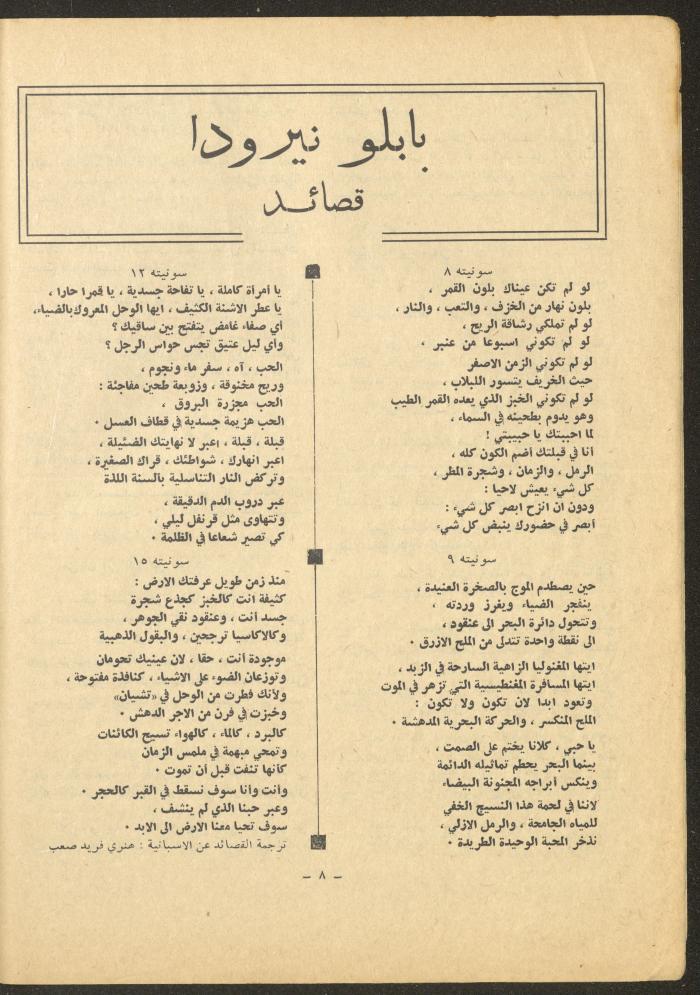 بابلو نيرودا
قصائد
سونيته ٨
لو لم تكن عيناك بلون القمر ،
بلون نهار من الخزف ، والتعب ، والنار ،
لو لم تملكي رشاقة الريح ،
لو لم تكوني اسبوعا من عنبر ،
لو لم تكوني الزمن الاصفر
حيث الخريف يتسور اللبلاب ،
لو لم تكوني الخبز الذي يعده القمر الطيب
وهو يدوم بطحينه في السماء ،
لما احببتك يا حبيبتي !
أنا في قبلتك اضم الكون كله ،
الرمل ، والزمان ، وشجرة المطر ،
كل شيء يعيش لاحيا :
ودون ان انزح ابصر كل شيء :
أبصر في حضورك ينبض كل شيء
سونيته ٩
حين يصطدم الموج بالصخرة العنيدة ،
ينفجر الضياء ويفرز وردته ،
وتتحول دائرة البحر الى عنقود ،
الى نقطة واحدة تتدلى من الملح الازرق ٠
ايتها المغنوليا الزاهية السارحة في الزبد ،
ايتها المسافرة المغنطيسية التي تزهر في الموت
وتعود ابدا لان تكون ولا تكون :
الملح المنكسر ، والحركة البحرية المدهشة ٠
يا حبي ، كلانا يختم على الصمت ،
بينما البحر يحطم تماثيله الدائمة
وينكس أبراجه المجنونة البيضاء
لاننا في لحمة هذا النسيج الخفي
للمياه الجامحة ، والرمل الازلي ،
نذخر المحبة الوحيدة الطريدة ٠
سونيته ١٢
يا أمرأة كاملة ، يا تفاحة جسدية ، يا قمرا حارا ،
يا عطر الاشنة الكثيف ، ايها الوحل المعروك بالضياء،
أي صفاء غامض يتفتح بين ساقيك ؟
وأي ليل عتيق تجس حواس الرجل ؟
الحب ، آه ، سفر ماء ونجوم ،
وريح مخنوقة ، وزوبعة طحين مفاجئة :
الحب مجزرة البروق ،
الحب هزيمة جسدية في قطاف العسل ٠
قبلة ، قبلة ، اعبر لا نهايتك الضئيلة ،
اعبر انهارك ، شواطئك ، قراك الصغيرة ،
وتركض النار التناسلية بالسنة اللذة
عبر دروب الدم الدقيقة ،
وتتهاوى مثل قرنفل ليلي ،
كي تصير شعاعا في الظلمة ٠
سونيته ١٥
منذ زمن طويل عرفتك الارض :
كثيفة انت كالخبز كجذع شجرة
جسد أنت ، وعنقود نقي الجوهر ،
وكالاكاسيا ترجحين ، والبقول الذهبية
موجودة أنت ، حقا ، لان عينيك تحومان
وتوزعان الضوء على الاشياء ، كنافذة مفتوحة ،
ولأنك فطرت من الوحل في «تشيان»
وخبزت في فرن من الاجر الدهش ٠
كالبرد ، كالماء ، كالهواء تسيح الكائنات
وتمحي مبهمة في ملمس الزمان
كأنها تفتت قبل أن تموت ٠
وأنت وأنا سوف نسقط في القبر كالحجر ٠
وعبر حبنا الذي لم ينشف ،
سوف تحيا معنا الارض الى الابد ٠
ترجمة القصائد عن الاسبانية : هنري فريد صعب
- ٨ -